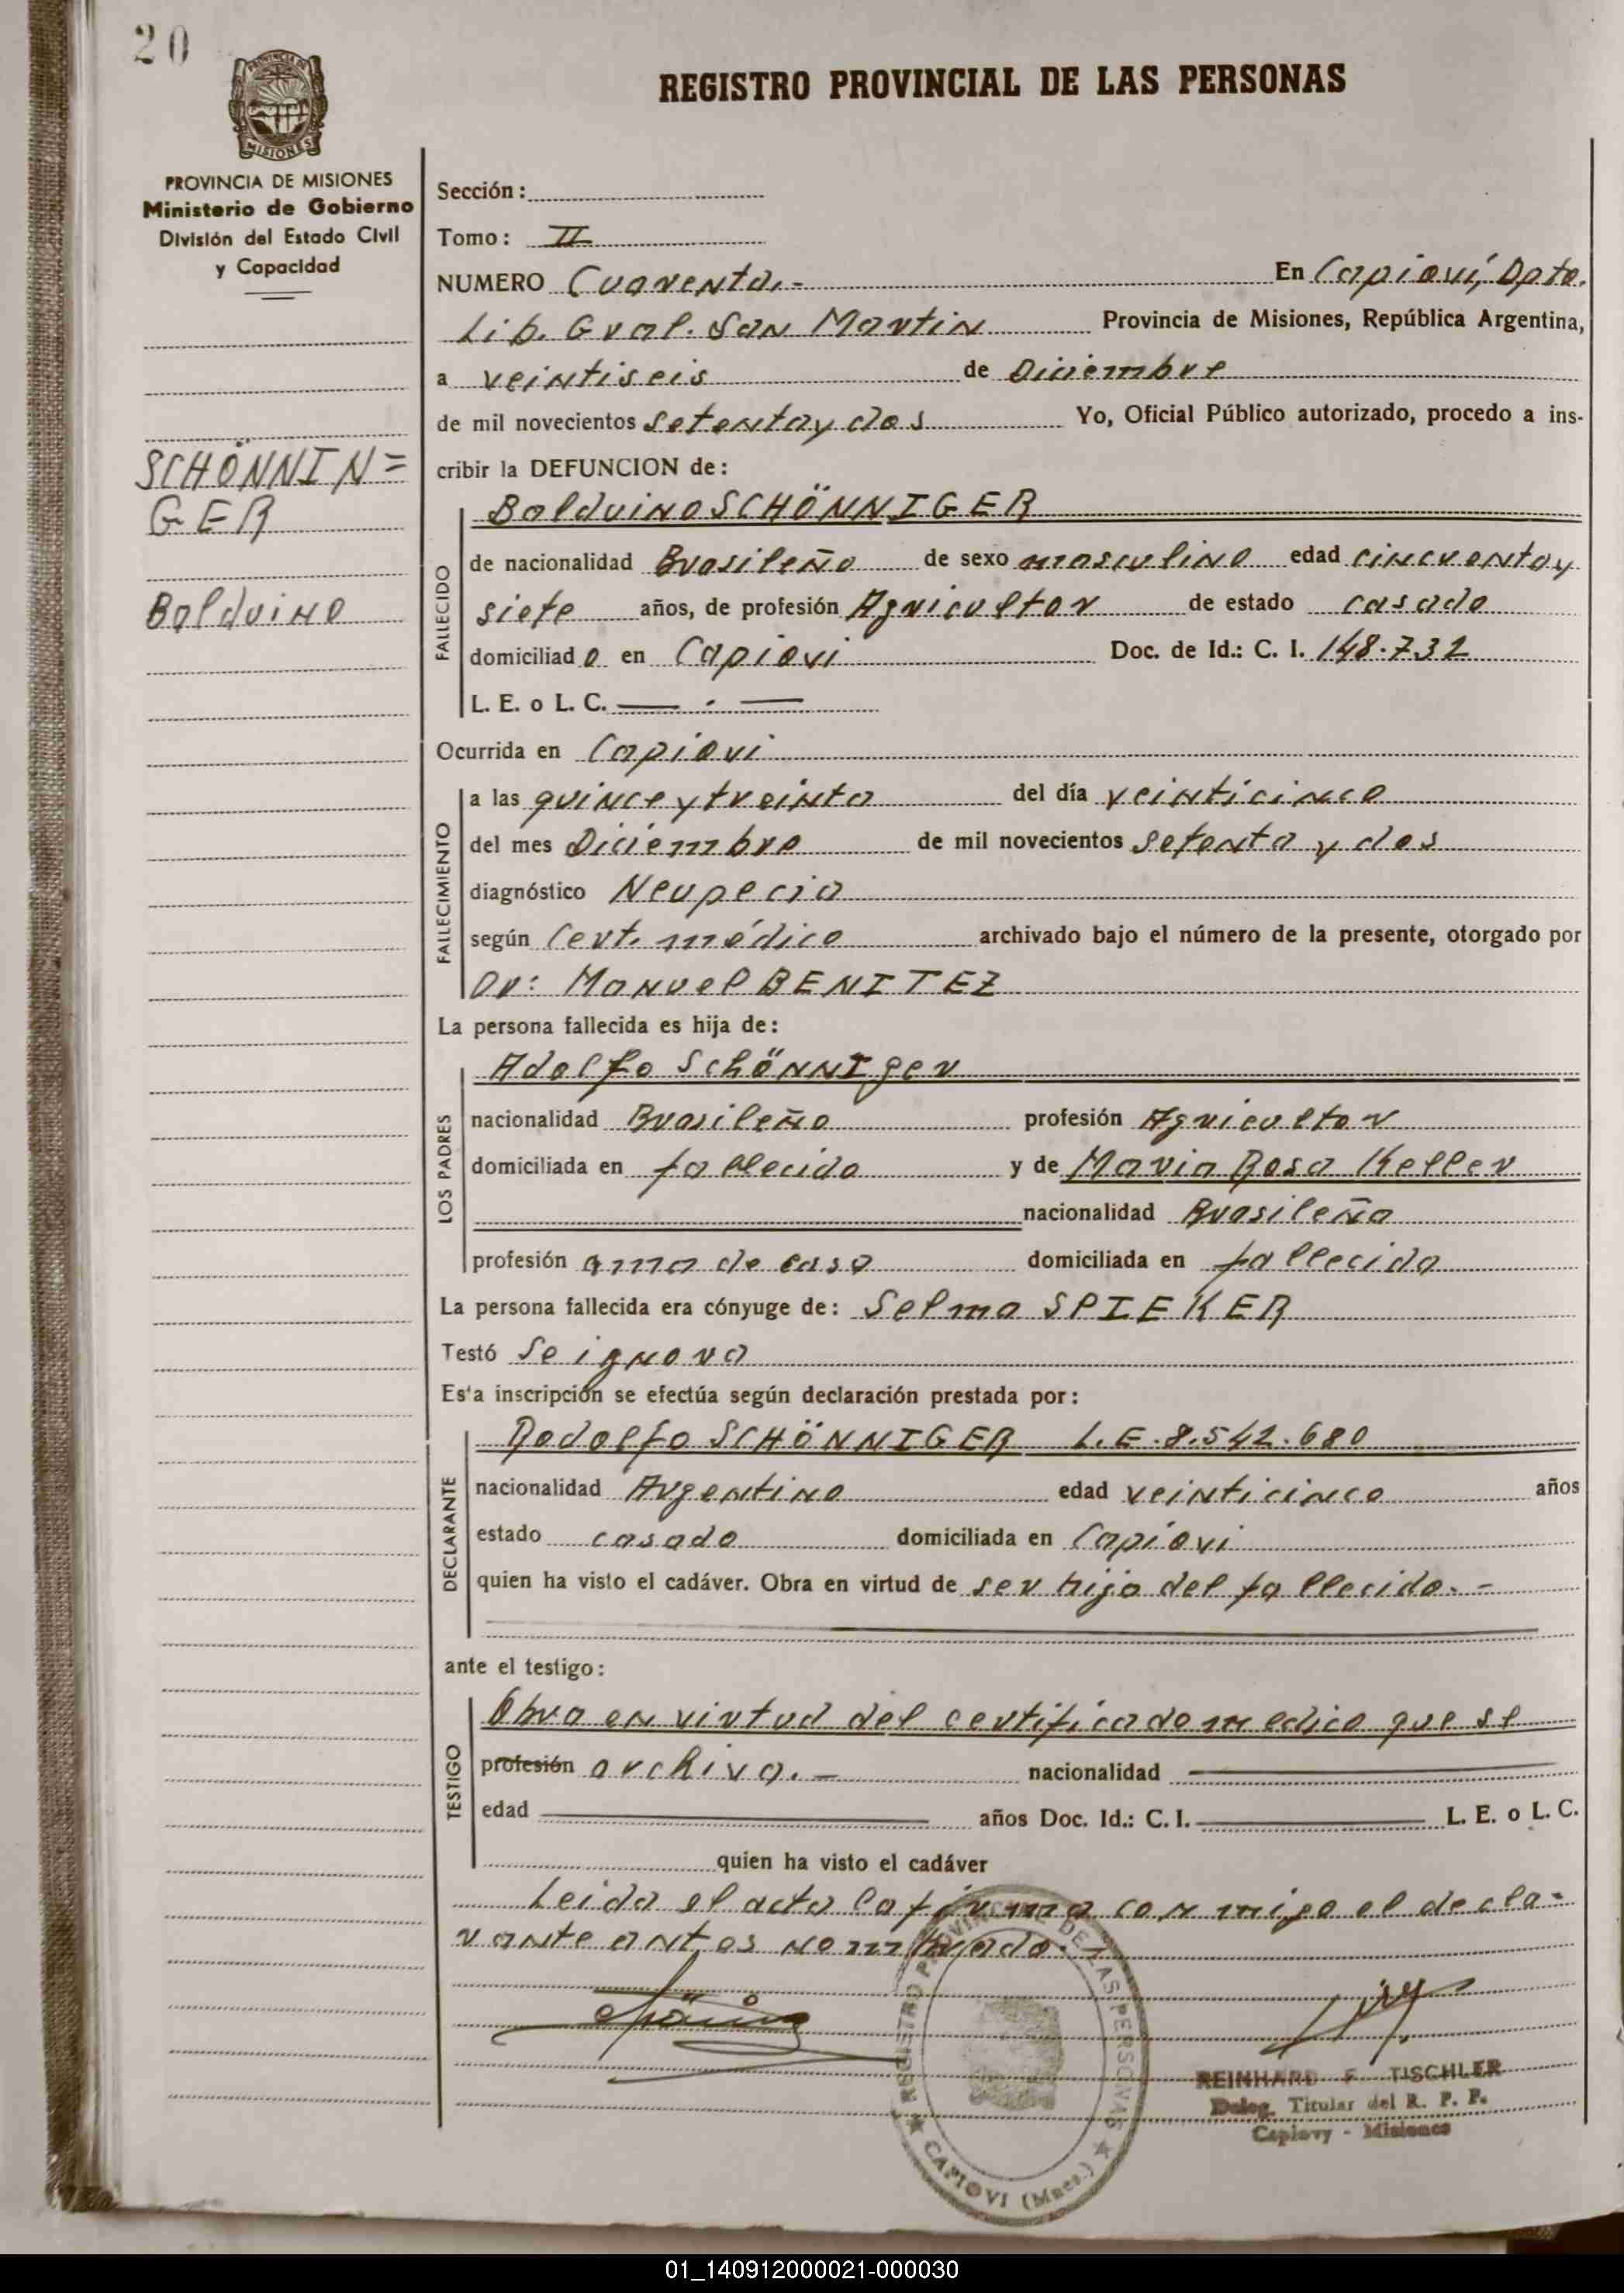 20
MISIONES
PROVINCIA DE MISIONES
Ministerio de Gobierno
División del Estado Civil
y Capacidad
REGISTRO PROVINCIAL DE LAS PERSONAS
Sección:
Tomo: II
NUMERO Cuarenta.- En Capioví, Dpto.
Lib. Gral. San Martin Provincia de Misiones, República Argentina,
a veintiseis de Diciembre
de mil novecientos setenta y dos Yo, Oficial Público autorizado, procedo a ins-
cribir la DEFUNCION de:
SCHÖNNIN=
GER
Balduino
FALLECIDO
Balduino SCHÖNNIGER
de nacionalidad Brasileño de sexo masculino edad cincuenta y
siete años, de profesión Agricultor de estado casado
domiciliado en Capiovi Doc. de Id.: C. I. 148.732
L. E. o L. C. — . —
Ocurrida en Capiovi
FALLECIMIENTO
a las quince y treinta del día veinticinco
del mes Diciembre de mil novecientos setenta y dos
diagnóstico Neupecia
según Cert. médico archivado bajo el número de la presente, otorgado por
Dr: Manuel BENITEZ
La persona fallecida es hija de:
LOS PADRES
Adolfo SchöNNIger
nacionalidad Brasileño profesión Agricultor
domiciliada en fallecido y de Maria Rosa Keller
nacionalidad Brasileña
profesión ama de casa domiciliada en fallecida
La persona fallecida era cónyuge de: Selma SPIEKER
Testó Se ignora
Es'a inscripción se efectúa según declaración prestada por:
DECLARANTE
Rodolfo SCHÖNNIGER L.E.8.542.680
nacionalidad Argentino edad veinticinco años
estado casado domiciliada en Capiovi
quien ha visto el cadáver. Obra en virtud de ser hijo del fallecido.-
ante el testigo:
TESTIGO
Obra en virtud del certificado medico que se
profesión archiva.- nacionalidad
edad años Doc. Id.: C. I. L. E. o L. C.
quien ha visto el cadáver
Leida el acta la firma conmigo el decla-
rante antes nombrado.-
REGISTRO PROVINCIAL DE LAS PERSONAS
CAPIOVI (Mnes.)
REINHARD F. TISCHLER
Deleg. Titular del R. P. P.
Capiovy - Misiones
01_140912000021-000030